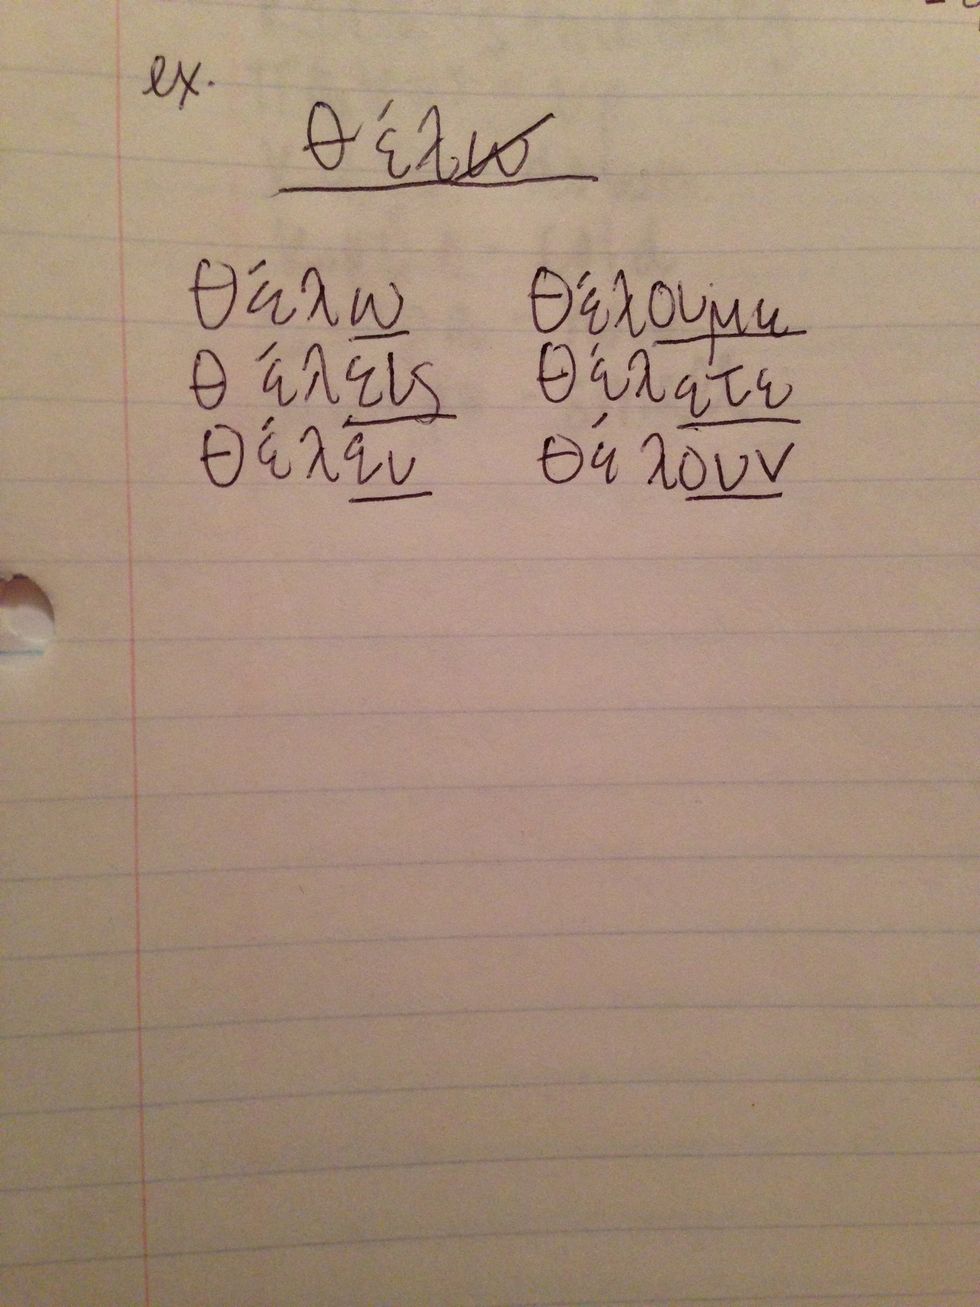 ex.
θέλω
θέλω θέλουμε
θέλεις θέλετε
θέλευ θέλουν